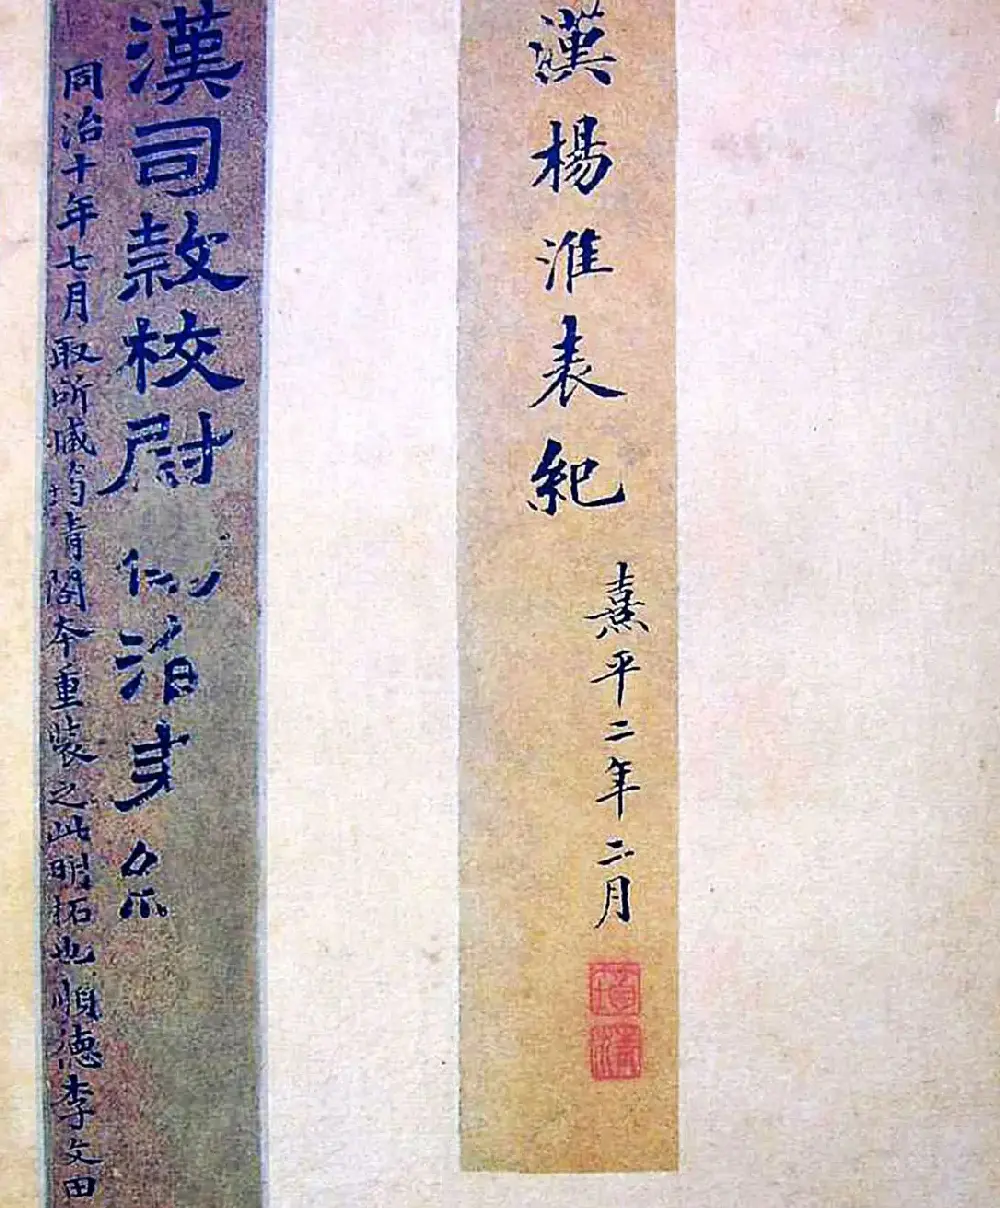 漢楊淮表紀
熹平二年二月
漢司隸校尉
同治十年七月取所臧筠清閣本重裝之此明拓也順德李文田